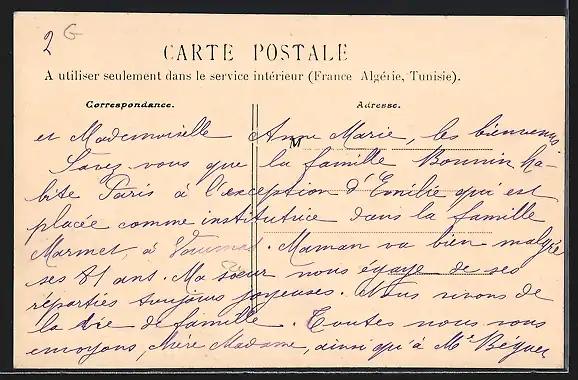 2 G
CARTE POSTALE
A utiliser seulement dans le service intérieur (France Algérie, Tunisie).
Correspondance.
Adresse.
M
et Mademoiselle Anne Marie, les bienvenus
Savez vous que la famille Bonnin ha-
bite Paris à l'exception d'Emilie qui est
placée comme institutrice dans la famille
Marmet, à . Maman va bien malgré
ses 81 ans. Ma sœur nous égaye de ses
réparties toujours joyeuses. Nous vivons de
la vie de famille. Toutes nous vous
envoyons, chère Madame, ainsi qu'à Mr